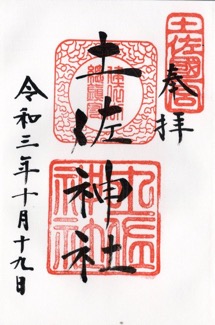 奉拝
土佐國一宮
土佐神社
令和三年十月十九日